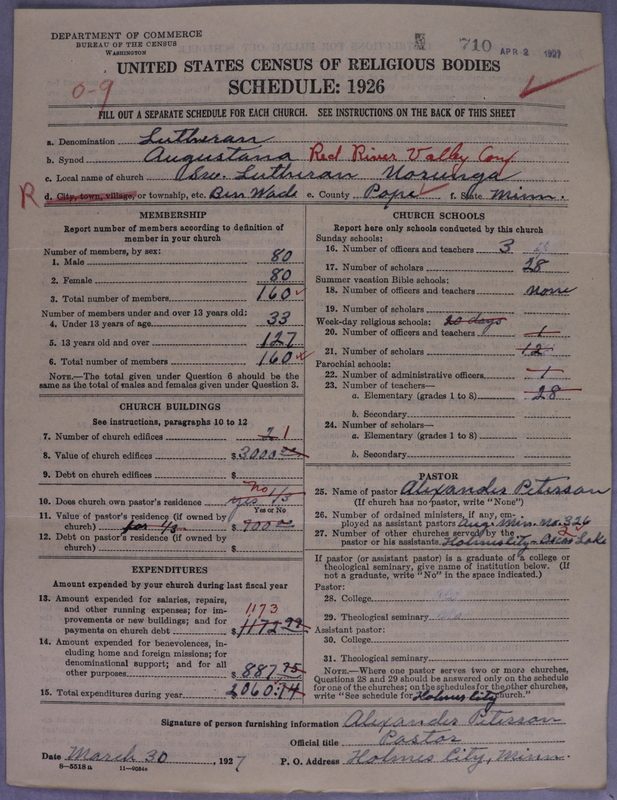 DEPARTMENT OF COMMERCE
BUREAU OF THE CENSUS
WASHINGTON
710 APR 2 1927
UNITED STATES CENSUS OF RELIGIOUS BODIES
SCHEDULE: 1926
0-9
FILL OUT A SEPARATE SCHEDULE FOR EACH CHURCH. SEE INSTRUCTIONS ON THE BACK OF THIS SHEET
a. Denomination Lutheran
b. Synod Augustana Red River Valley Conf
c. Local name of church Sw. Lutheran Norunga
R d. City, town, village, or township, etc. Ben Wade e. County Pope f. State Minn.
MEMBERSHIP
Report number of members according to definition of
member in your church
Number of members, by sex:
1. Male 80
2. Female 80
3. Total number of members 160
Number of members under and over 13 years old:
4. Under 13 years of age 33
5. 13 years old and over 127
6. Total number of members 160
NOTE.—The total given under Question 6 should be
same as the total of males and females given under Question 3.
CHURCH BUILDINGS
See instructions, paragraphs 10 to 12
7. Number of church edifices 2 1
8. Value of church edifices $3000.00
9. Debt on church edifices $
10. Does church own pastor's residence yes No 1/3
Yes or No
11. Value of pastor's residence (if owned by
church) for 1/3 $ 900.00
12. Debt on pastor's residence (if owned by
church) $
EXPENDITURES
Amount expended by your church during last fiscal year
13. Amount expended for salaries, repairs,
and other running expenses; for im-
provements or new buildings; and for
payments on church debt $1172.99 1173
14. Amount expended for benevolences, in-
cluding home and foreign missions; for
denominational support; and for all
other purposes $887.75
15. Total expenditures during year $2060.74
CHURCH SCHOOLS
Report here only schools conducted by this church
Sunday schools:
16. Number of officers and teachers 3
17. Number of scholars 28
Summer vacation Bible schools:
18. Number of officers and teachers none
19. Number of scholars
Week-day religious schools: 20 days
20. Number of officers and teachers 1
21. Number of scholars 12
Parochial schools:
22. Number of administrative officers 1
23. Number of teachers—
a. Elementary (grades 1 to 8) 28
b. Secondary
24. Number of scholars—
a. Elementary (grades 1 to 8)
b. Secondary
PASTOR
25. Name of pastor Alexander Peterson
(If church has no pastor, write "None")
26. Number of ordained ministers, if any, em-
ployed as assistant pastors Aug. Min. No. 326
27. Number of other churches served by the
pastor or his assistants Holmes City - Oscar Lake 2
If pastor (or assistant pastor) is a graduate of a college or
theological seminary, give name of institution below. (If
not a graduate, write "No" in the space indicated.)
Pastor:
28. College
29. Theological seminary
Assistant pastor:
30. College
31. Theological seminary
NOTE.—Where one pastor serves two or more churches,
Questions 28 and 29 should be answered only on the schedule
for one of the churches; on the schedules for the other churches,
write "See schedule for Holmes City church."
Signature of person furnishing information Alexander Peterson
Official title Pastor
Date March 30, 1927 P. O. Address Holmes City, Minn.
8-5518 a 11-9084a